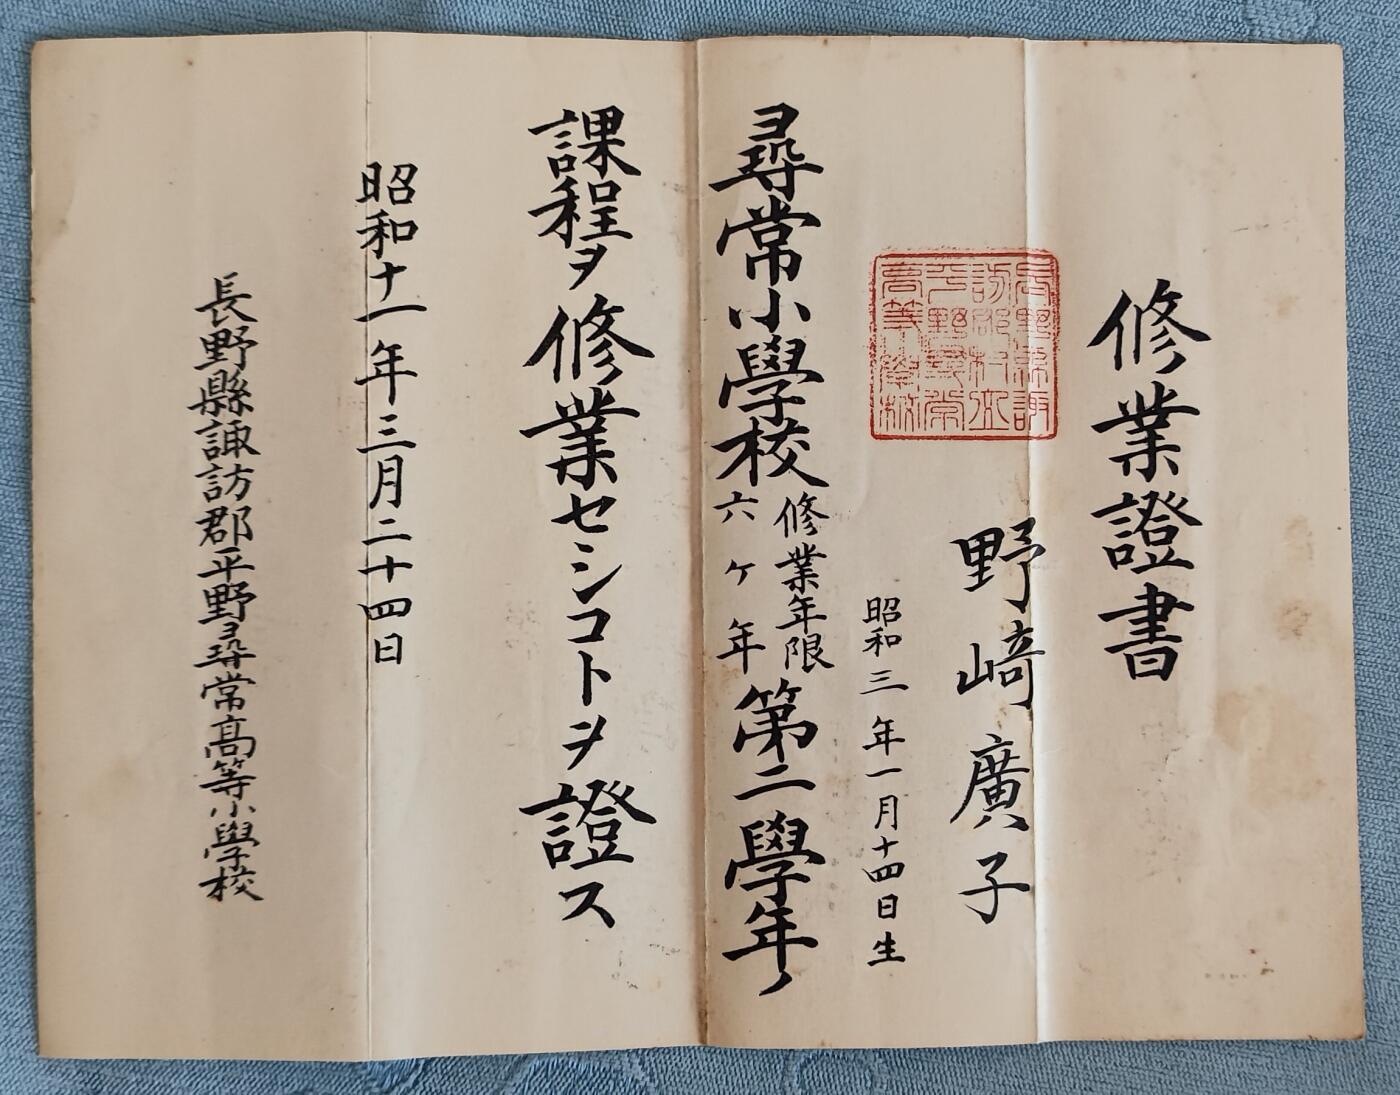 修業證書
長野縣諏
訪郡村立
平野尋常
高等學校
野﨑廣子
昭和三年一月十四日生
尋常小學校修業年限六ヶ年第二學年ノ
課程ヲ修業セシコトヲ證ス
昭和十一年三月二十四日
長野縣諏訪郡平野尋常高等小學校